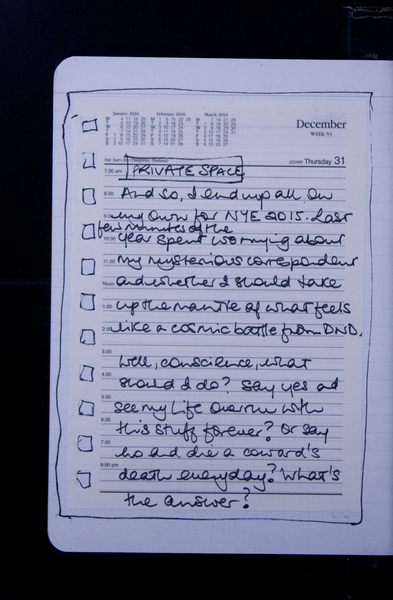 January 2016 February 2016 March 2016
December
WEEK 53
Thursday 31
7:00 am PRIVATE SPACE
8.00 And so, I end up all on
9.00 my own for NYE 2015. Last
few minutes of the
10.00 year spent worrying about
11.00 my mysterious correspondent
Noon and whether I should take
1.00 up the mantle of what feels
2.00 like a cosmic battle from DND.
3.00
Well, conscience, what
4.00 should I do? Say yes and
5.00 see my life overrun with
6.00 this stuff forever? Or say
7.00 no and die a coward's
8.00 pm death everyday? What's
the answer?